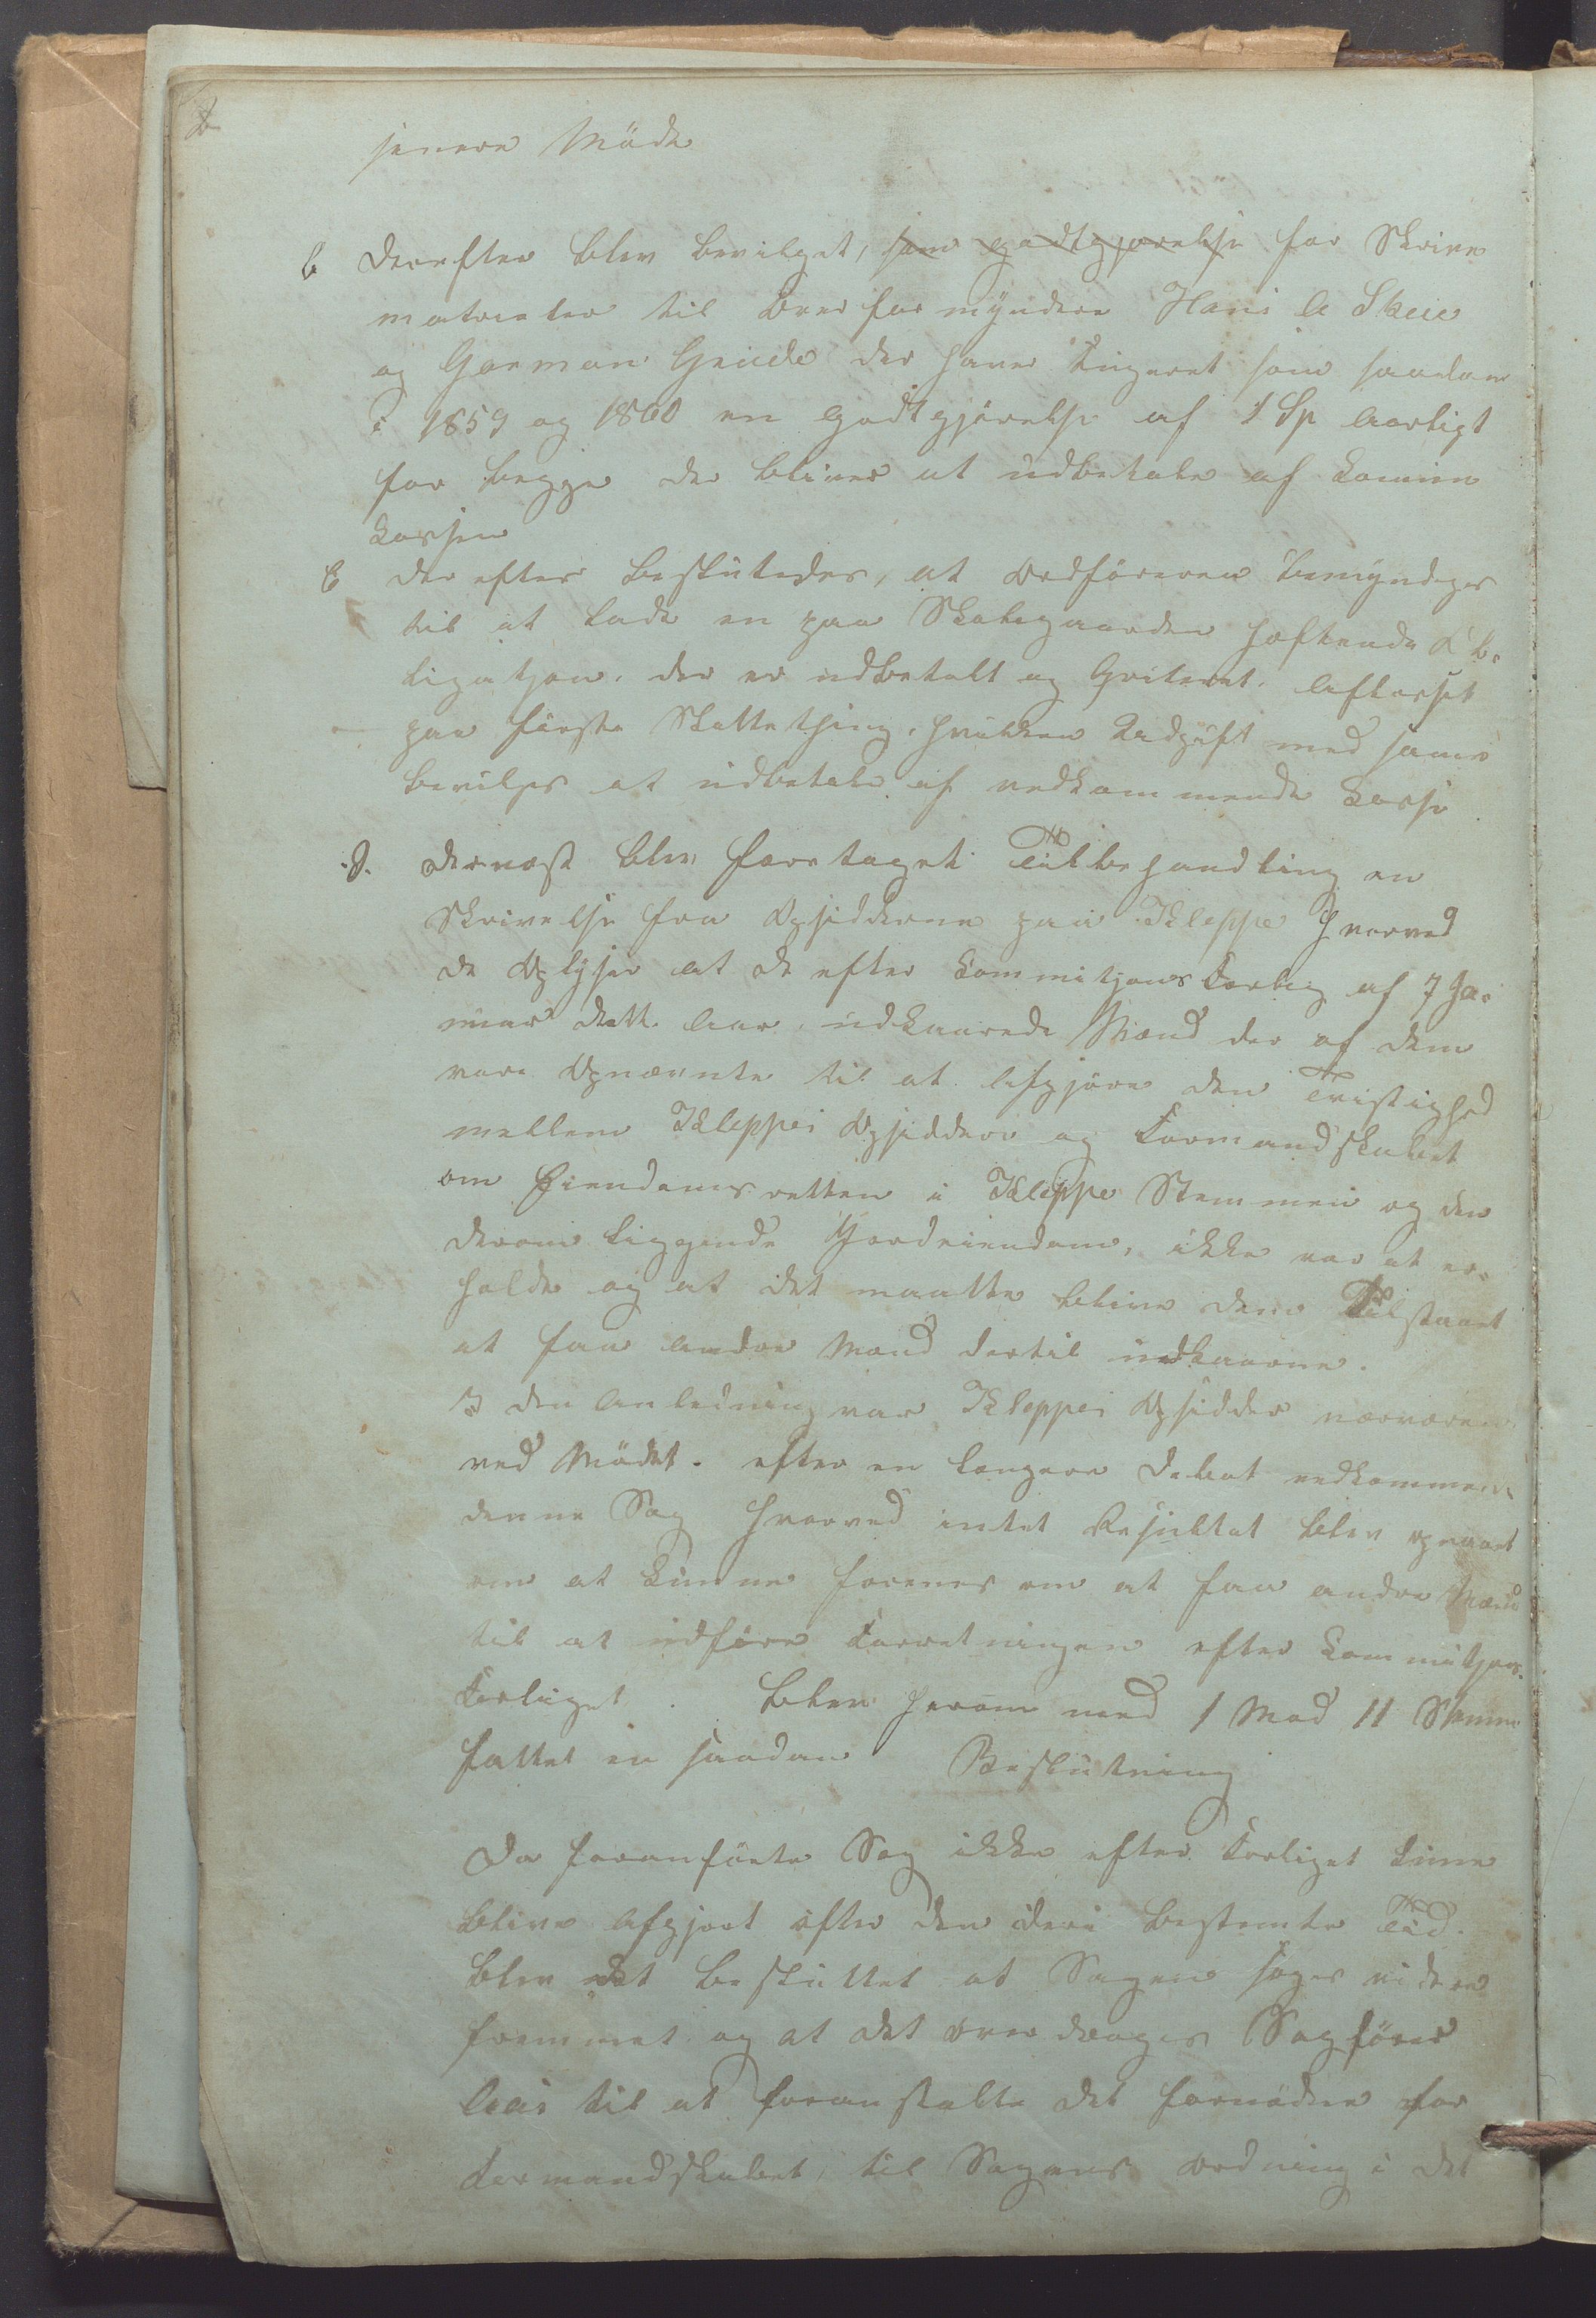 senere Möde
b Derefter blev bevilget, som godtgjorelse for Skrive
matrieler til Overformyndere Hans A Skeie
og Gorman Grude der haver Fungeret som saadan
i 1859 og 1860 en godtgjörelse af 1 Sp Aarligt
for begge der bliver at udbetale af Komun
Kassen
C Der efter besluttedes, at Ordföreren bemyndiges
til at lade en paa Skolegaarden heftende Ob-
ligatjon, der er udbetalt og Qvitteret. Aflæsset
paa förste Skattething, hvilken Udgift med samt
bevilges at udbetale af vedkommende Kasse
D. Dernæst blev foretaget Til behandling en
Skrivelse fra Opsidderne paa Kleppe hvorved
de Oplyser at de efter Kommitjons Forlig af 7 Ja-
nuar dette Aar, udkaarede Mænd der af dem
vare Opnævnte til at Afgjöre den Tvistighed
mellem Kleppes Opsiddere og Formandskabet
om Eiendomsretten i Kleppe Stemmen og den
derom liggende Jordeiendom, ikke var at er-
holde og at det maatte blive dem Tilstaaet
at faa andre Mænd dertil udkaarne.
I den Anledning var Kleppes Opsidder nærværen
ved Mödet. efter en længere Debat vedkommen
denne Sag hvorved intet Resultat blev opnaaet
om at kunne forenes om at faa andre Mænd
til at udföre Forretningen efter Kommitjons.
Forliget. blev herom med 1 Mod 11 Stemm
fattet en saadan Beslutning
Da foranförte Sag ikke efter Forliget kune
blive Afgjort efter den deri bestemte Tid.
blev det besluttet at Sagen söges videre
fremmet og at det overdrages Sagförer
til at foranstalte det fornödne for
Formandskabet, til Sagens Ordning i det